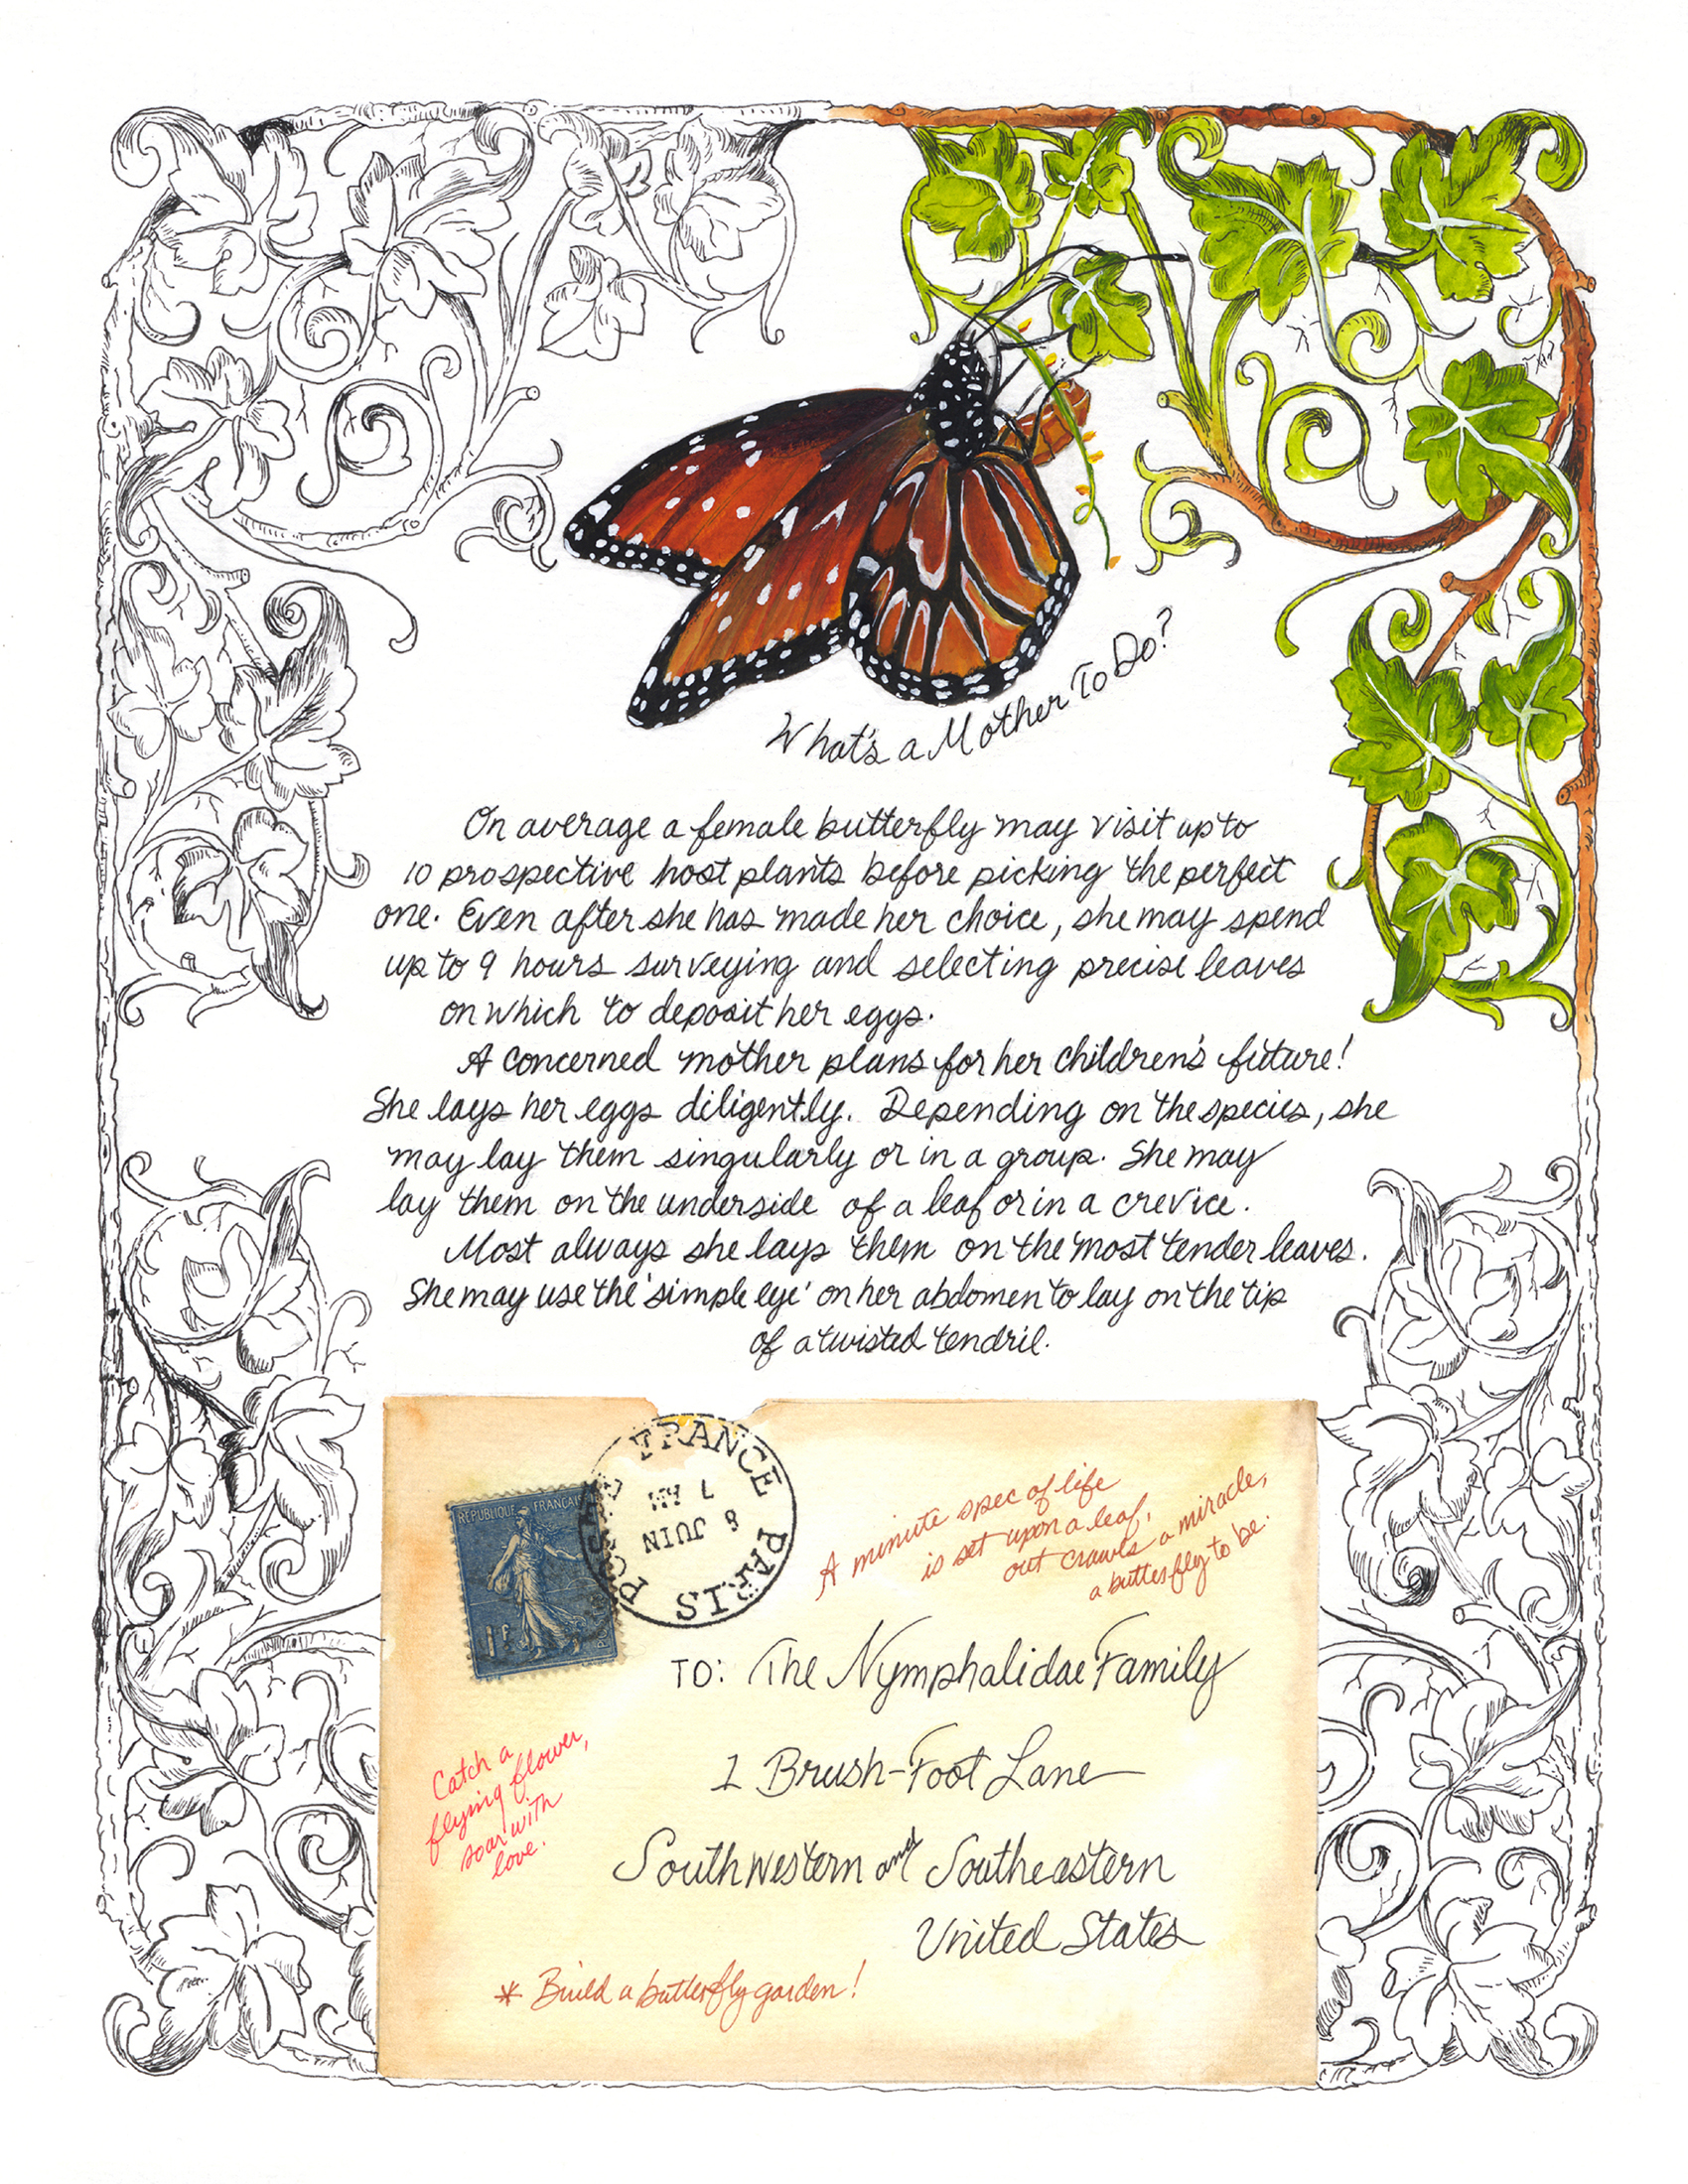 What's a Mother To Do?
On average a female butterfly may visit up to
10 prospective host plants before picking the perfect
one. Even after she has made her choice, she may spend
up to 9 hours surveying and selecting precise leaves
on which to deposit her eggs.
A concerned mother plans for her children's future!
She lays her eggs diligently. Depending on the species, she
may lay them singularly or in a group. She may
lay them on the underside of a leaf or in a crevice.
Most always she lays them on the most tender leaves.
She may use the 'simple eye' on her abdomen to lay on the tip
of a twisted tendril.
FRANCE
PARIS
7 AM
8 JUIN
REPUBLIQUE FRANCAISE
1 F
A minute spec of life
is set upon a leaf,
out crawls a miracle,
a butterfly to be.
TO: The Nymphalidae Family
1 Brush-Foot Lane
Southwestern and Southeastern
United States
Catch a
flying flower,
soar with
love.
* Build a butterfly garden!